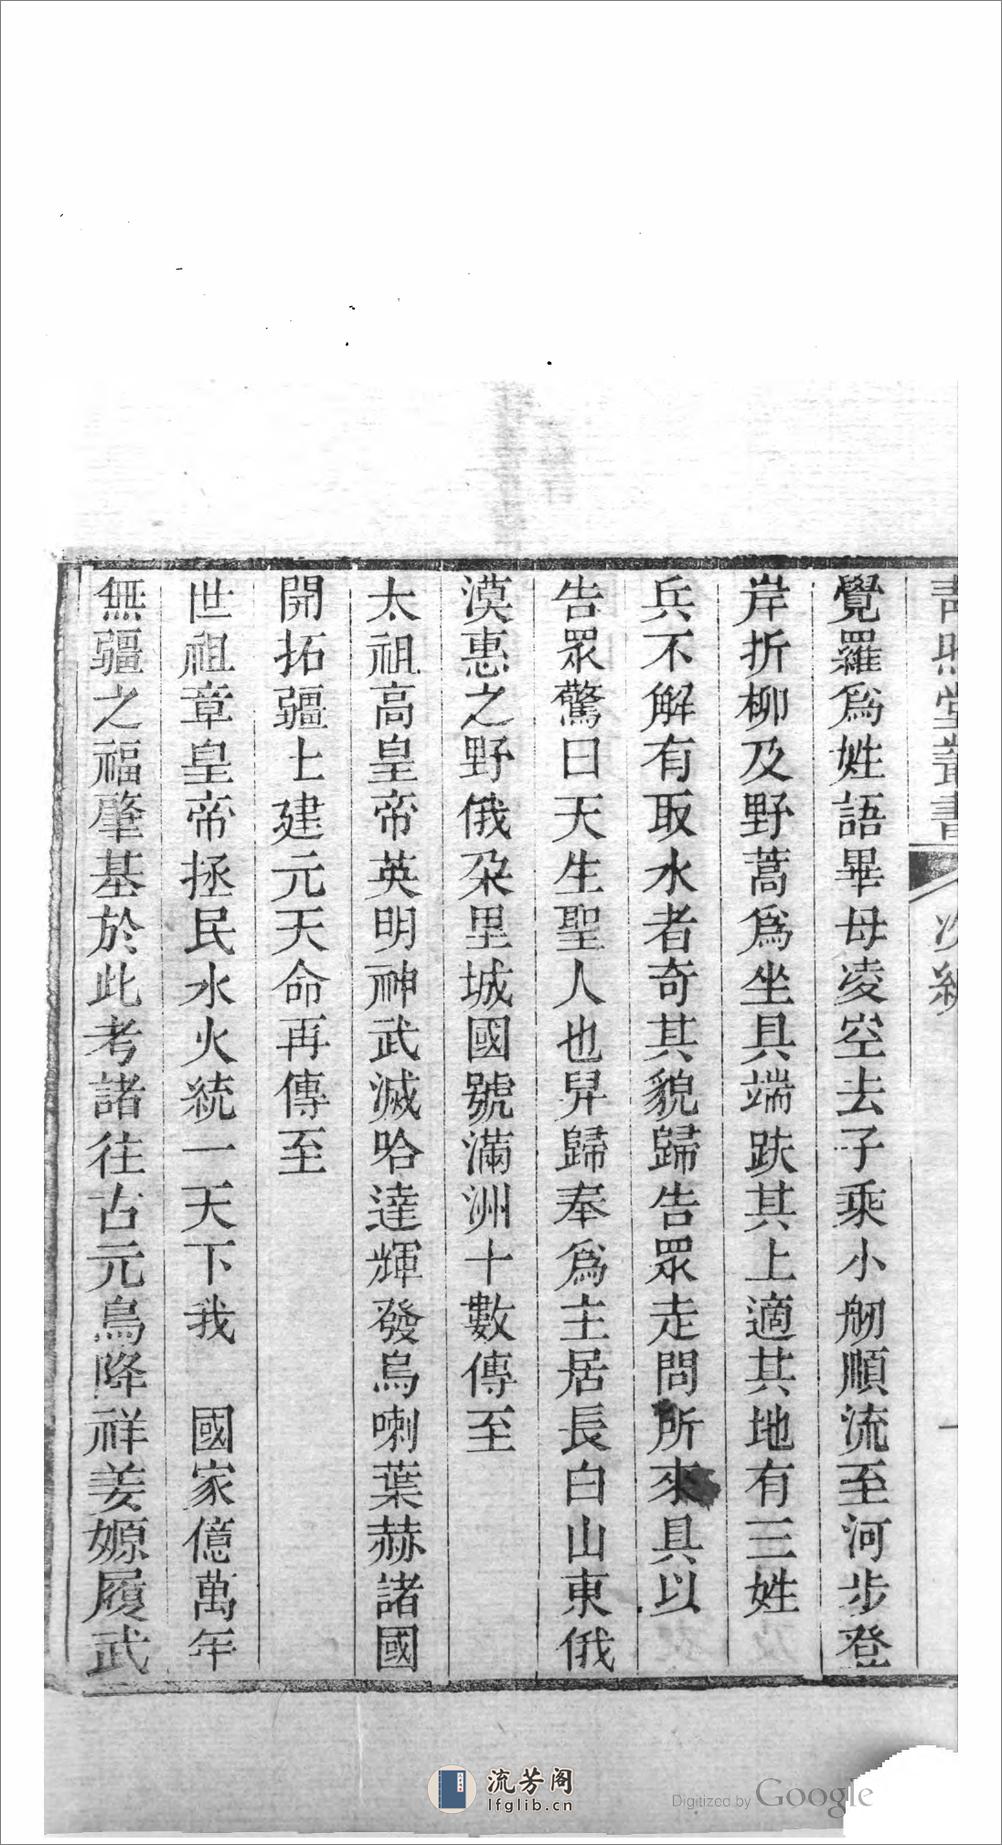 青照堂叢書
次編
一
覺羅爲姓語畢母凌空去子乘小舠順流至河步登
岸折柳及野蒿爲坐具端趺其上適其地有三姓
兵不解有取水者奇其貌歸告眾走問所來具以
告眾驚曰天生聖人也舁歸奉爲主居長白山東俄
漠惠之野俄朶里城國號滿洲十數傳至
太祖高皇帝英明神武滅哈達輝發烏喇葉赫諸國
開拓疆土建元天命再傳至
世祖章皇帝拯民水火統一天下我 國家億萬年
無疆之福肇基於此考諸往古元鳥降祥姜嫄履武
流芳阁
lfglib.cn
Digitized by Google